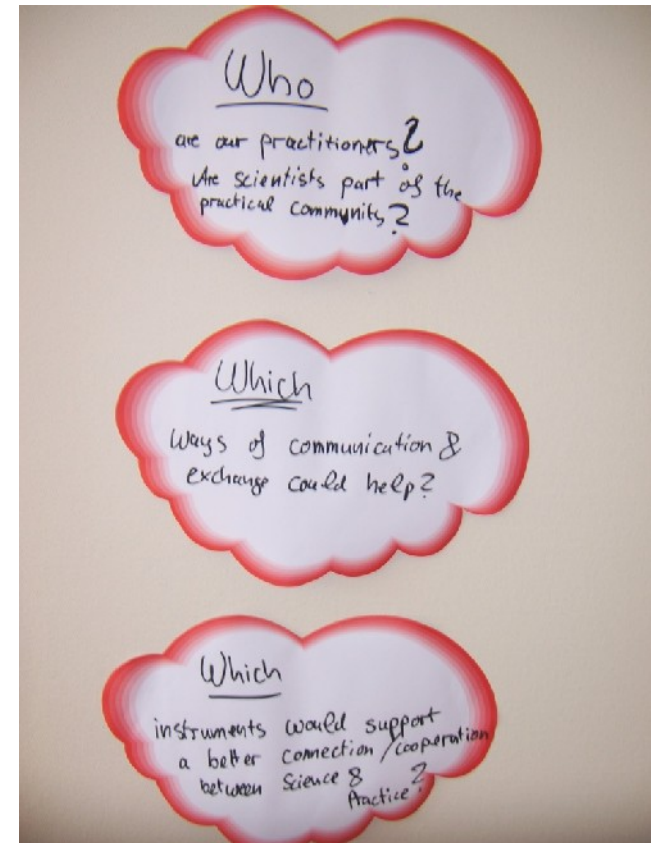 Who
are our practitioners?
Are scientists part of the
practical community?
Which
ways of communication &
exchange could help?
Which
instruments would support
a better connection/cooperation
between Science &
Practice?